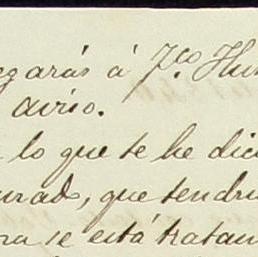 egarás á Fco Hu
aviso.
lo que te he dic
urado, que tendr
ra se está tratan